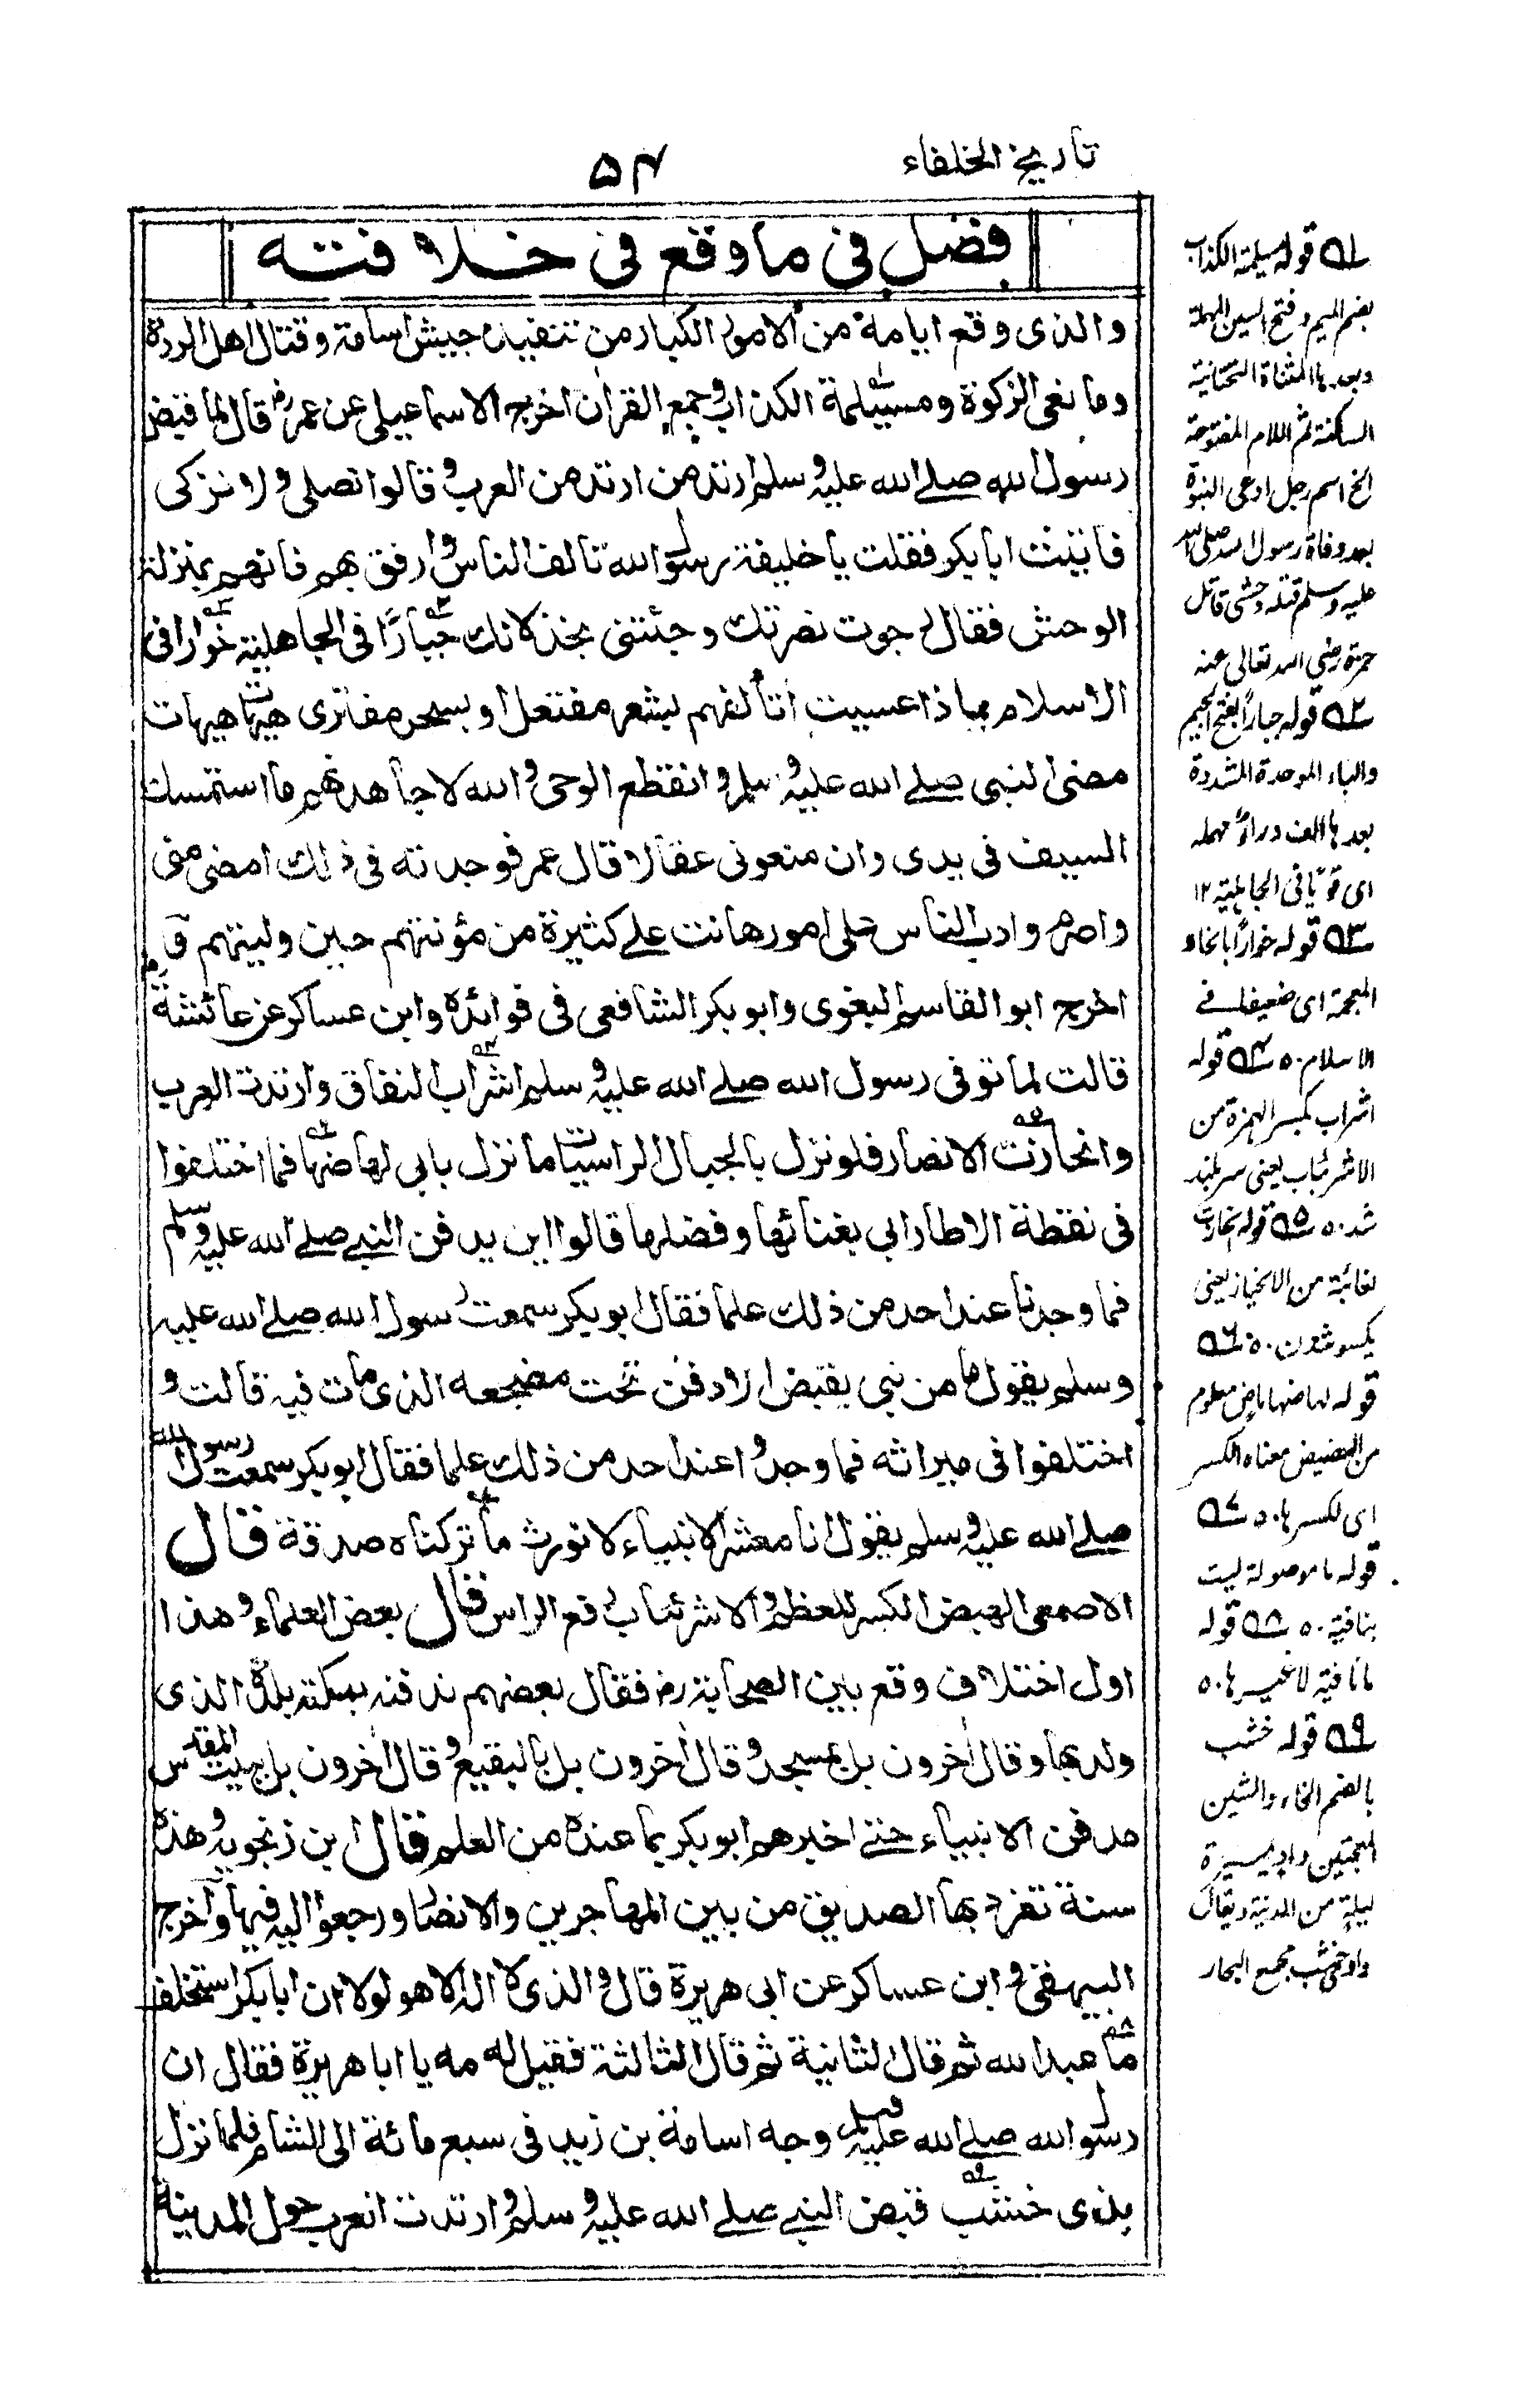 تاريخ الخلفاء
۵۴
فصل فى ما وقع فى خلافته
والذى وقع ايامه من الامور الكبار من تنفيذ جيش اسامة وقتال اهل الردة
وما نعى الزكوة ومسيلمة الكذاب وجمع القران اخرج الاسماعيلى عن عمر رض قال لما قبض
رسول الله صلے الله عليه وسلم ارتد من ارتد من العرب وقالوا نصلى ولا نزكى
فاتيت ابا بكر فقلت يا خليفة رسول الله تالف الناس وارفق بهم فانهم بمنزلة
الوحش فقال رجوت نصرتك وجئتنى بخذلانك جبارًا فى الجاهلية خوارا فى
الاسلام بماذا عسيت أتألفهم بشعر مفتعل او بسحر مفترى هيهات هيهات
مضى النبى صلے الله عليه وسلم وانقطع الوحى والله لاجاهدنهم ما استمسك
السيف فى يدى وان منعونى عقالا قال عمر فوجدته فى ذلك امضى منى
واصرم وادب الناس على امور هانت علے كثيرة من مؤنتهم حين وليتهم ق
اخرج ابو القاسم البغوى وابو بكر الشافعى فى فوائده وابن عساكر عن عائشة رض
قالت لما توفى رسول الله صلے الله عليه وسلم اشراب النفاق وارتدت العرب
وانحازت الانصار فلو نزل بالجبال الراسيات ما نزل بابى لهاضها فما اختلفوا
فى نقطة الا طار ابى بغنائها وفضلها قالوا اين يدفن النبے صلے الله عليه وسلم
فما وجدنا عند احد من ذلك علما فقال ابو بكر سمعت رسول الله صلے الله عليه
وسلم يقول ما من نبى يقبض الا دفن تحت مضجعه الذى مات فيه قالت و
اختلفوا فى ميراثه فما وجدوا عند احد من ذلك علما فقال ابو بكر سمعت رسول الله
صلے الله عليه وسلم يقول انا معشر الانبياء لا نورث ما تركناه صدقة قال
الاصمعى الهيض الكسر للعظم والاشرئباب رفع الراس قال بعض العلماء وهذا
اول اختلاف وقع بين الصحابة رض فقال بعضهم ندفنه بمكة بلده الذى
ولد بها وقال اخرون بل بمسجده وقال اخرون بل بالبقيع وقال اخرون بل ببيت المقدس
مدفن الانبياء حتے اخبرهم ابو بكر بما عنده من العلم قال ابن زنجويه وهذه
سنة تفرد بها الصديق من بين المهاجرين والانصار ورجعوا اليه فيها واخرج
البيهقى وابن عساكر عن ابى هريرة قال والذى لا اله الا هو لولا ان ابا بكر استخلف
ما عبد الله ثم قال الثانية ثم قال الثالثة فقيل له مه يا ابا هريرة فقال ان
رسول الله صلے الله عليه وسلم وجه اسامة بن زيد فى سبع مائة الى الشام فلما نزل
بذى خشب قبض النبے صلے الله عليه وسلم وارتدت العرب حول المدينة
۱ قوله مسيلمة الكذاب
بضم الميم وفتح السين المهملة
وبعدها المثناة التحتانية
الساكنة ثم اللام المفتوحة
الخ اسم رجل ادعى النبوة
بعد وفاة رسول الله صلى الله
عليه وسلم قتله وحشى قاتل
حمزة رضي الله تعالى عنه
۲ قوله جبارًا بفتح الجيم
والباء الموحدة المشددة
بعدها الف وراءٌ مهملة
اى قويًا فى الجاهلية ۱۲
۳ قوله خوارًا بالخاء
المعجمة اى ضعيفا فے
الاسلام ۵ ۴ قوله
اشراب بكسر الهمزة من
الاشرئباب يعنى سر بلند
شد ۵ ۵ قوله انحازت
غائبة من الانحياز يعنى
يكسو شدن ۵ ۶
قوله لهاضها ماضٍ معلوم
من الهيض معناه الكسر
اى لكسرها ۵ ۷
قوله ما موصولة ليست
بنافية ۵ ۸ قوله
ما نافية لا غيرها ۵
۹ قوله خشب
بالضم الخاء والشين
المعجمتين واد بمسيرة
ليلة من المدينة ويقال
واد خشب مجمع البحار